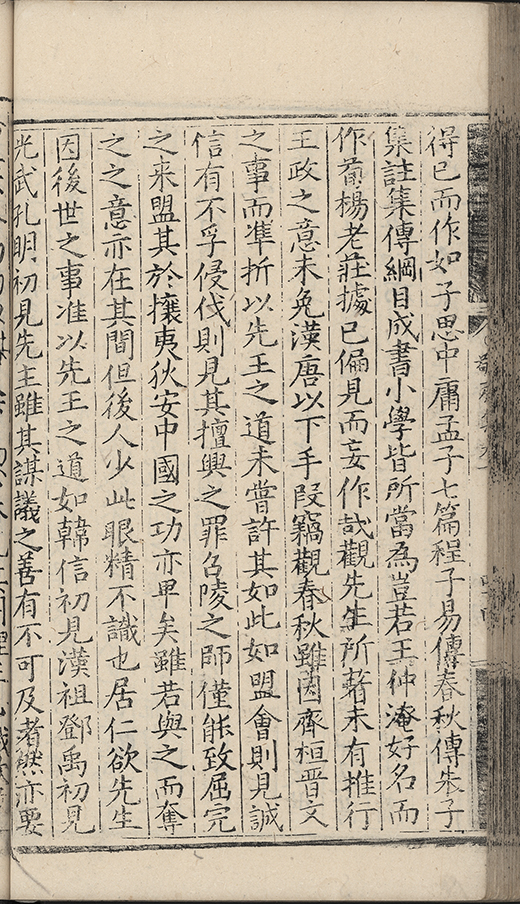 得已而作如子思中庸孟子七篇程子易傳春秋傳朱子
集註集傳綱目成書小學皆所當為豈若王仲淹好名而
作荀楊老莊據已偏見而妄作哉觀先生所著未有推行
王政之意未免漢唐以下手段竊觀春秋雖因齊桓晉文
之事而準折以先王之道未嘗許其如此如盟會則見誠
信有不孚侵伐則見其擅興之罪召陵之師僅能致屈完
之来盟其於攘夷狄安中國之功亦畢矣雖若與之而奪
之之意亦在其間但後人少此眼精不識也居仁欲先生
因後世之事准以先王之道如韓信初見漢祖鄧禹初見
光武孔明初見先主雖其謀議之善有不可及者然亦要